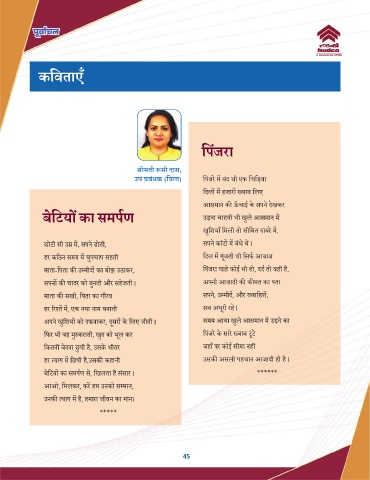 पूर्वांचल
हडको
hudco
कविताएँ
श्रीमती रूमी दास,
उप प्रबंधक (वित्त)
बेटियों का समर्पण
छोटी सी उम्र में, सपने ढोती,
हर कठिन समय में चुपचाप सहती
माता-पिता की उम्मीदों का बोझ उठाकर,
सपनों की चादर को बुनती और सहेजती।
माता की सखी, पिता का गौरव
हर रिश्ते में, एक नया नाम बनाती
अपने खुशियों को दफनाकर, दूसरों के लिए जीती।
फिर भी वह मुस्कराती, खुद को भूल कर
कितनी वेदना छुपी है, उसके भीतर
हर त्याग में छिपी है,उसकी कहानी
बेटियों का समर्पण से, खिलता है संसार।
आओ, मिलकर, करें हम उनको सम्मान,
उनकी त्याग में है, हमारा जीवन का मान।
*****
पिंजरा
पिंजरे में बंद थी एक चिड़िया
दिलों में हजारों ख्वाब लिए
आसमान की ऊँचाई के सपने देखकर
उड़ना चाहती थी खुले आसमान में
खुशियाँ मिली तो सीमित दायरे में,
सपने कांटों में बंधे थे।
दिल में गूंजती थी सिर्फ आवाज
पिंजरा चाहे कोई भी हो, दर्द तो वही है,
अपनी आजादी की कीमत का पता
सपने, उम्मीदें, और ख्वाहिशें,
सब अधूरी रहें।
समय आया खुले आसमान में उड़ने का
पिंजरे के सारे ख्वाब टूटे
जहाँ पर कोई सीमा नहीं
उसकी असली पहचान आजादी ही है।
******
45